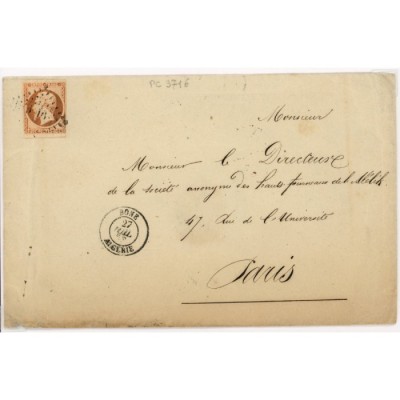 PC 3716
Monsieur
Monsieur le Directeur
de la societé anonyme des hauts fourneaux de l'Alelik
47, Rue de l'Université
Paris
BONE
27
JUIL.
ALGÉRIE